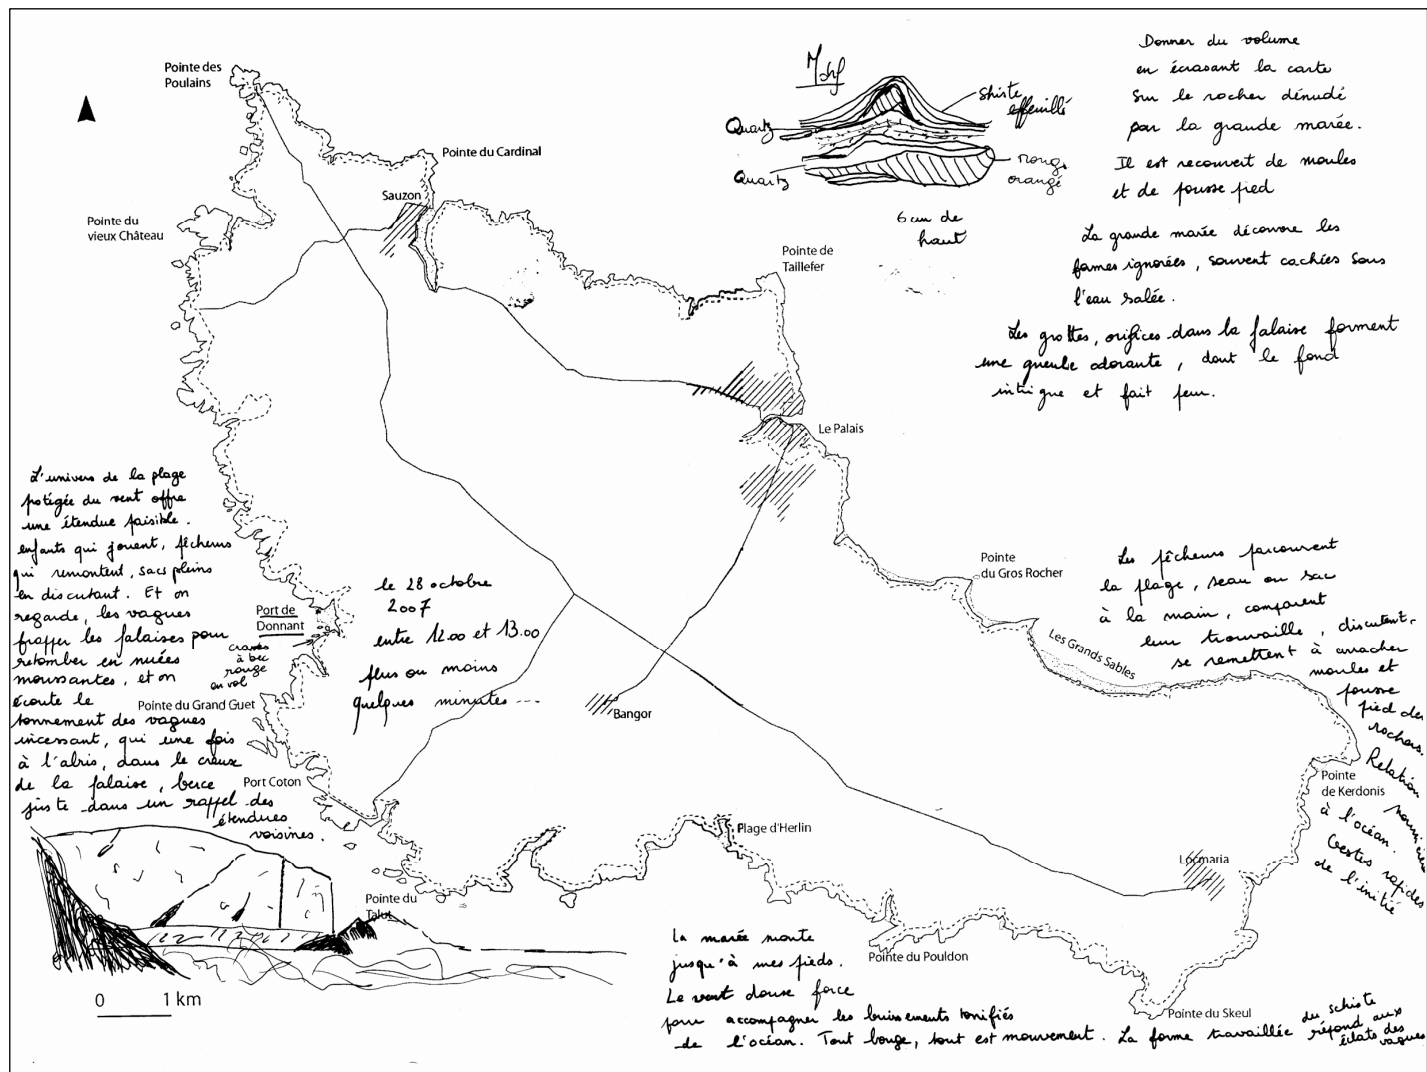 Pointe des
Poulains
Pointe du Cardinal
Sauzon
Pointe du
vieux Château
Pointe de
Taillefer
Le Palais
Pointe
du Gros Rocher
Les Grands Sables
Port de
Donnant
Pointe du Grand Guet
Port Coton
Bangor
Plage d'Herlin
Pointe
de Kerdonis
Locmaria
Pointe du
Talut
Pointe du Pouldon
Pointe du Skeul
0 1 km
shiste
effeuillé
Quartz
Quartz
rouge
orangé
6 cm de
haut
Donner du volume
en écrasant la carte
sur le rocher dénudé
par la grande marée.
Il est recouvert de moules
et de pousse pied
La grande marée découvre les
formes ignorées, souvent cachées sous
l'eau salée.
Les grottes, orifices dans la falaise forment
une gueule odorante, dont le fond
intrigue et fait peur.
L'univers de la plage
protégée du vent offre
une étendue paisible.
enfants qui jouent, pêcheurs
qui remontent, sacs pleins
en discutant. Et on
regarde, les vagues
frapper les falaises pour
retomber en nuées
moussantes, et on
écoute le
tonnement des vagues
incessant, qui une fois
à l'abris, dans le creux
de la falaise, berce
juste dans un rappel des
étendues
voisines.
craves
à bec
rouge
en vol
le 28 octobre
2007
entre 12.00 et 13.00
plus ou moins
quelques minutes ---
Les pêcheurs parcourent
la plage, seau ou sac
à la main, comparent
leur trouvaille, discutent,
se remettent à arracher
moules et
pousse
pied des
rochers.
Relation
à l'océan.
Gestes rapides
de l'initié
La marée monte
jusqu'à mes pieds.
Le vent donne force
pour accompagner les bruissements tonifiés
de l'océan. Tout bouge, tout est mouvement. La forme travaillée du schiste
répond aux
éclats des
vagues